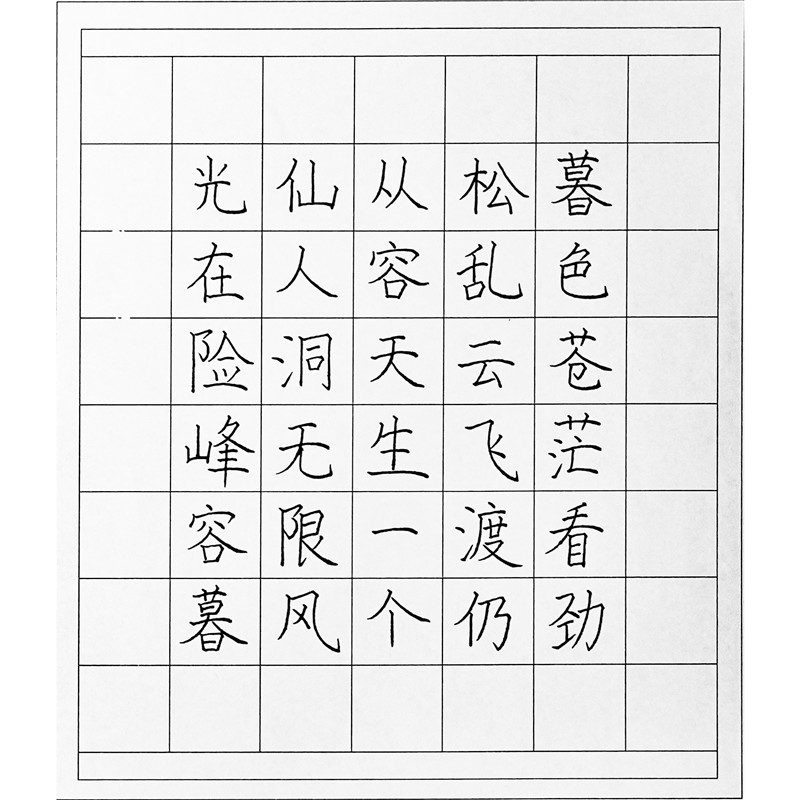 暮色苍茫看劲
松乱云飞渡仍
从容天生一个
仙人洞无限风
光在险峰容暮